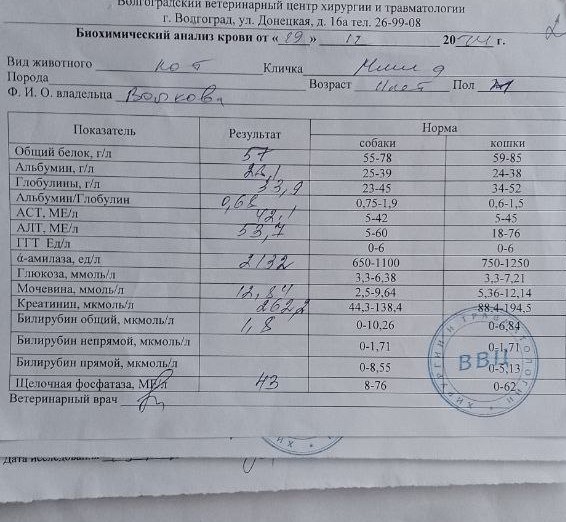 Волгоградский ветеринарный центр хирургии и травматологии
г. Волгоград, ул. Донецкая, д. 16а тел. 26-99-08
Биохимический анализ крови от « 19 » 20 г.
Вид животного кот Кличка
Порода Возраст Пол
Ф. И. О. владельца
Показатель Результат Норма
собаки кошки
Общий белок, г/л 57 55-78 59-85
Альбумин, г/л 25-39 24-38
Глобулины, г/л 33,9 23-45 34-52
Альбумин/Глобулин 0,68 0,75-1,9 0,6-1,5
АСТ, МЕ/л 42,1 5-42 5-45
АЛТ, МЕ/л 53,7 5-60 18-76
ГГТ Ед/л 0-6 0-6
α-амилаза, ед/л 2132 650-1100 750-1250
Глюкоза, ммоль/л 3,3-6,38 3,3-7,21
Мочевина, ммоль/л 12,84 2,5-9,64 5,36-12,14
Креатинин, мкмоль/л 262,2 44,3-138,4 88,4-194,5
Билирубин общий, мкмоль/л 1,8 0-10,26 0-6,84
Билирубин непрямой, мкмоль/л 0-1,71 0-1,71
Билирубин прямой, мкмоль/л 0-8,55 0-5,13
Щелочная фосфатаза, МЕ/л 43 8-76 0-62
Ветеринарный врач
ВВЦ
ХИРУРГИИ И ТРАВМАТОЛОГИИ